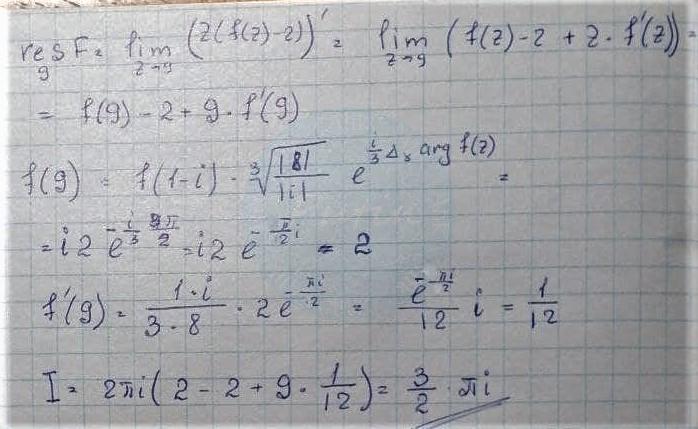 res_9 F = lim_{z→9} (z(f(z)-2))' = lim_{z→9} (f(z)-2 + z · f'(z)) =
= f(9) - 2 + 9 · f'(9)
f(9) = f(1-i) · ∛(|8|/|i|) e^{i/3 Δ_γ arg f(z)} =
= i 2 e^{-i/3 · 3π/2} = i 2 e^{-π/2 i} = 2
f'(9) = (1·i)/(3·8) · 2 e^{-πi/2} = e^{-πi/2}/12 i = 1/12
I = 2πi (2 - 2 + 9 · 1/12) = 3/2 · πi